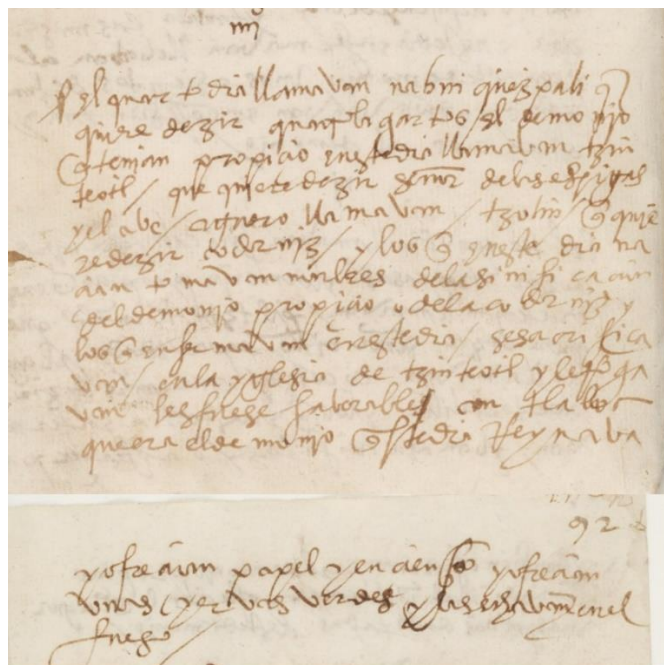 iiij
el quarto dia llamavan nabui quezpali q̃
quiere dezir quatro lagartos el demonjo
q̃ tenian propicio en este dia llamavan tzin
teotl / que quiere dezir señor de las espigas
y el ave / aguero llamavan / tzolin / q̃ quie
re dezir codorniz / y los q̃ en este dia na
çian tomavan nonbres de la sinificaçion
del demonjo propicio o de la codorniz y
los q̃ enfermavan en este dia / se sacrifica
van / en la yglesia de tzinteotl y le
van les fuese faborable / con tlaloc
que era el demonjo q̃ este dia Reynava
92
y ofreçian papel y ençienso y ofreçian
unas yervas verdes y las echavan en el
fuego